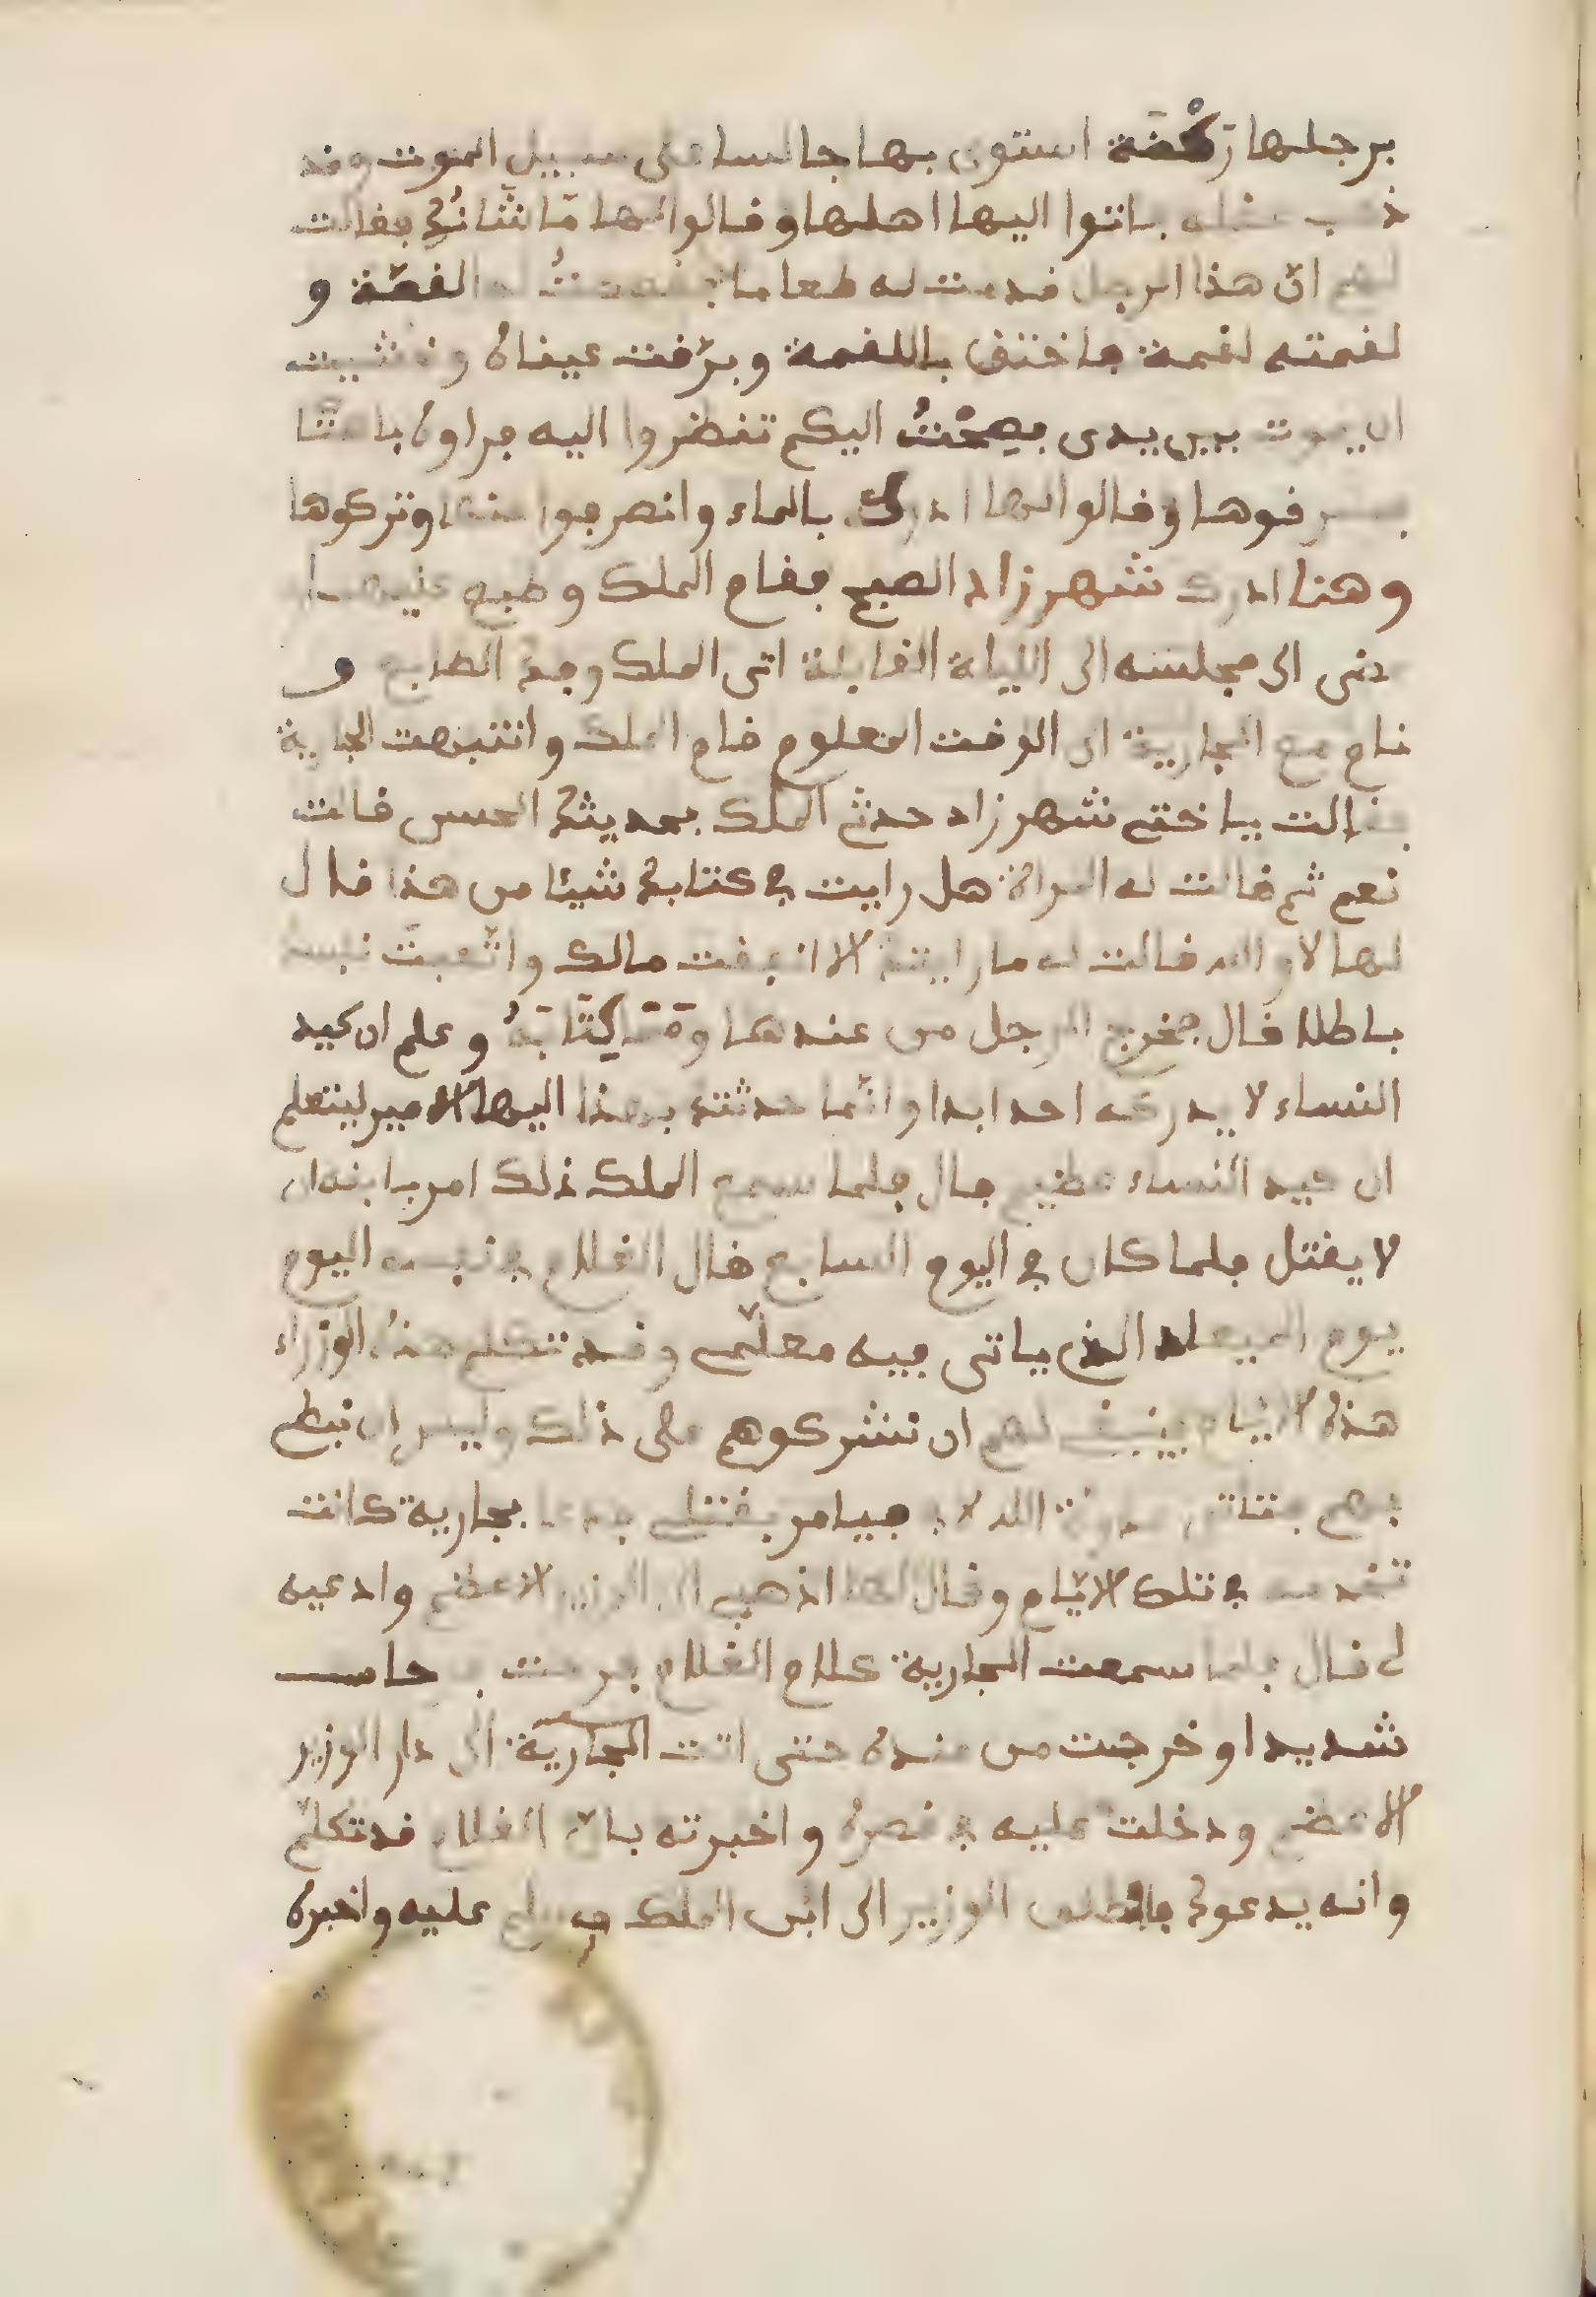 برجلها ركضة استوى بها جالسا على سبيل الموت وقد
ذهب عقله فاتوا اليها اهلها وقالوا لها ما شانك فقالت
لهم ان هذا الرجل قدمت له طعاما فقدمت له القمة و
لقمته لقمة فاختنق باللقمة وبرقت عيناه وخشيت
ان يموت بين يدى فصحت اليكم تنظروا اليه فراوه باهتا
فصرفوها وقالوا لها ادركه بالماء وانصرفوا عنها وتركوها
وهنا ادرك شهرزاد الصبح فقام الملك وطبع عليهما
مضى الى مجلسه الى الليلة القابلة اتى الملك وجد الطابع و
نام مع الجارية الى الوقت المعلوم قام الملك وانتبهت الجارية
فقالت يا ختى شهرزاد حدث الملك بحديثك الحسن قالت
نعم ثم قالت له المراة هل رايت في كتابك شيئا من هذا قال
لها لا والله قالت له ما رايته الا انفقت مالك واتعبت نفسك
باطلا قال فخرج الرجل من عندها ومقت كتابه وعلم ان كيد
النساء لا يدركه احد ابدا وانما حدثتك بهذا ايها الامير ليتعلم
ان كيد النساء عظيم قال فلما سمع الملك ذلك امر بابنه ان
لا يقتل فلما كان في اليوم السابع قال الغلام في نفسه اليوم
يوم الميعاد الذي ياتى فيه معلمى وقد تكلم هذه الوزراء
هذه الايام ينبغي لهم ان نشركوهم على ذلك وليس ان نبطى
بهم فتاتى مدونة الله لابى فيامر بقتلى فدعا بجارية كانت
تخدمه في تلك الايام وقال لها اذهبي الى الوزير الاعظم وادعيه
لى قال فلما سمعت الجارية كلام الغلام فرحت فرحا
شديدا وخرجت من عنده حتى اتت الجارية الى دار الوزير
الاعظم ودخلت عليه في قصره واخبرته بان الغلام قد تكلم
وانه يدعوك فانطلق الوزير الى ابن الملك وسلم عليه واخبره